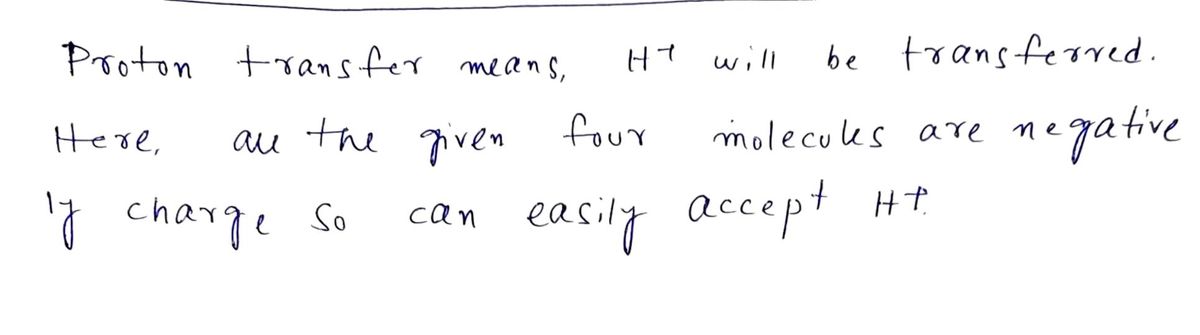 Proton transfer means, H+ will be transferred.
Here, all the given four molecules are negative
ly charge so can easily accept H+.